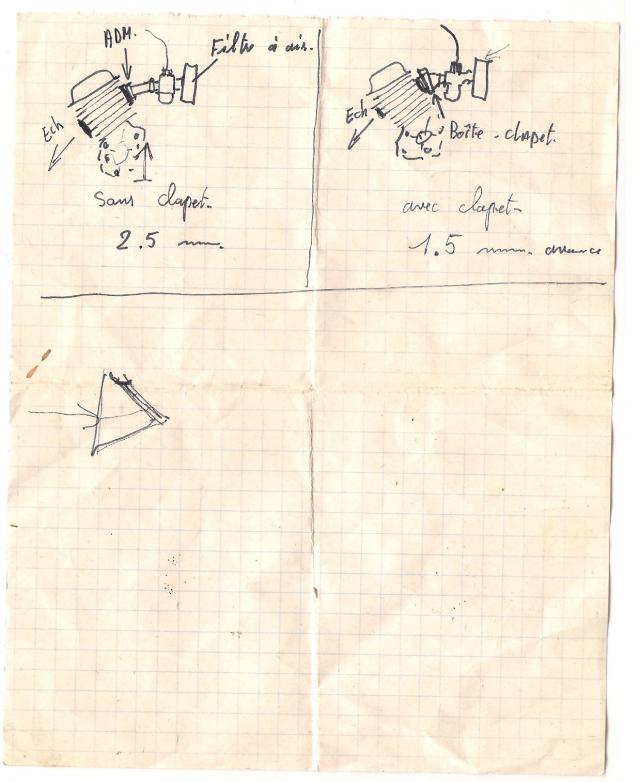 ADM.
Filtre à air.
Ech
Sans clapet.
2.5 mm.
Ech
Boîte-clapet.
avec clapet
1.5 mm. avance